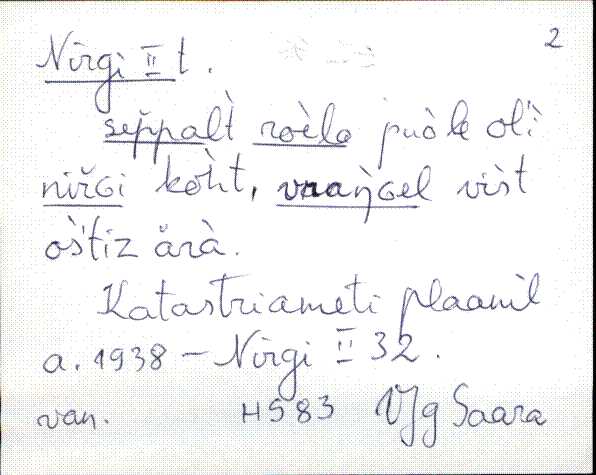 2
Nirgi II t.
sep̆palt̀ roèlo puòle olì
nirGi kòht, vraǹGel vist
ostìz ärà.
Katastriameti plaanil
a. 1938 – Nirgi II 32.
van. HS83 VJg Saara